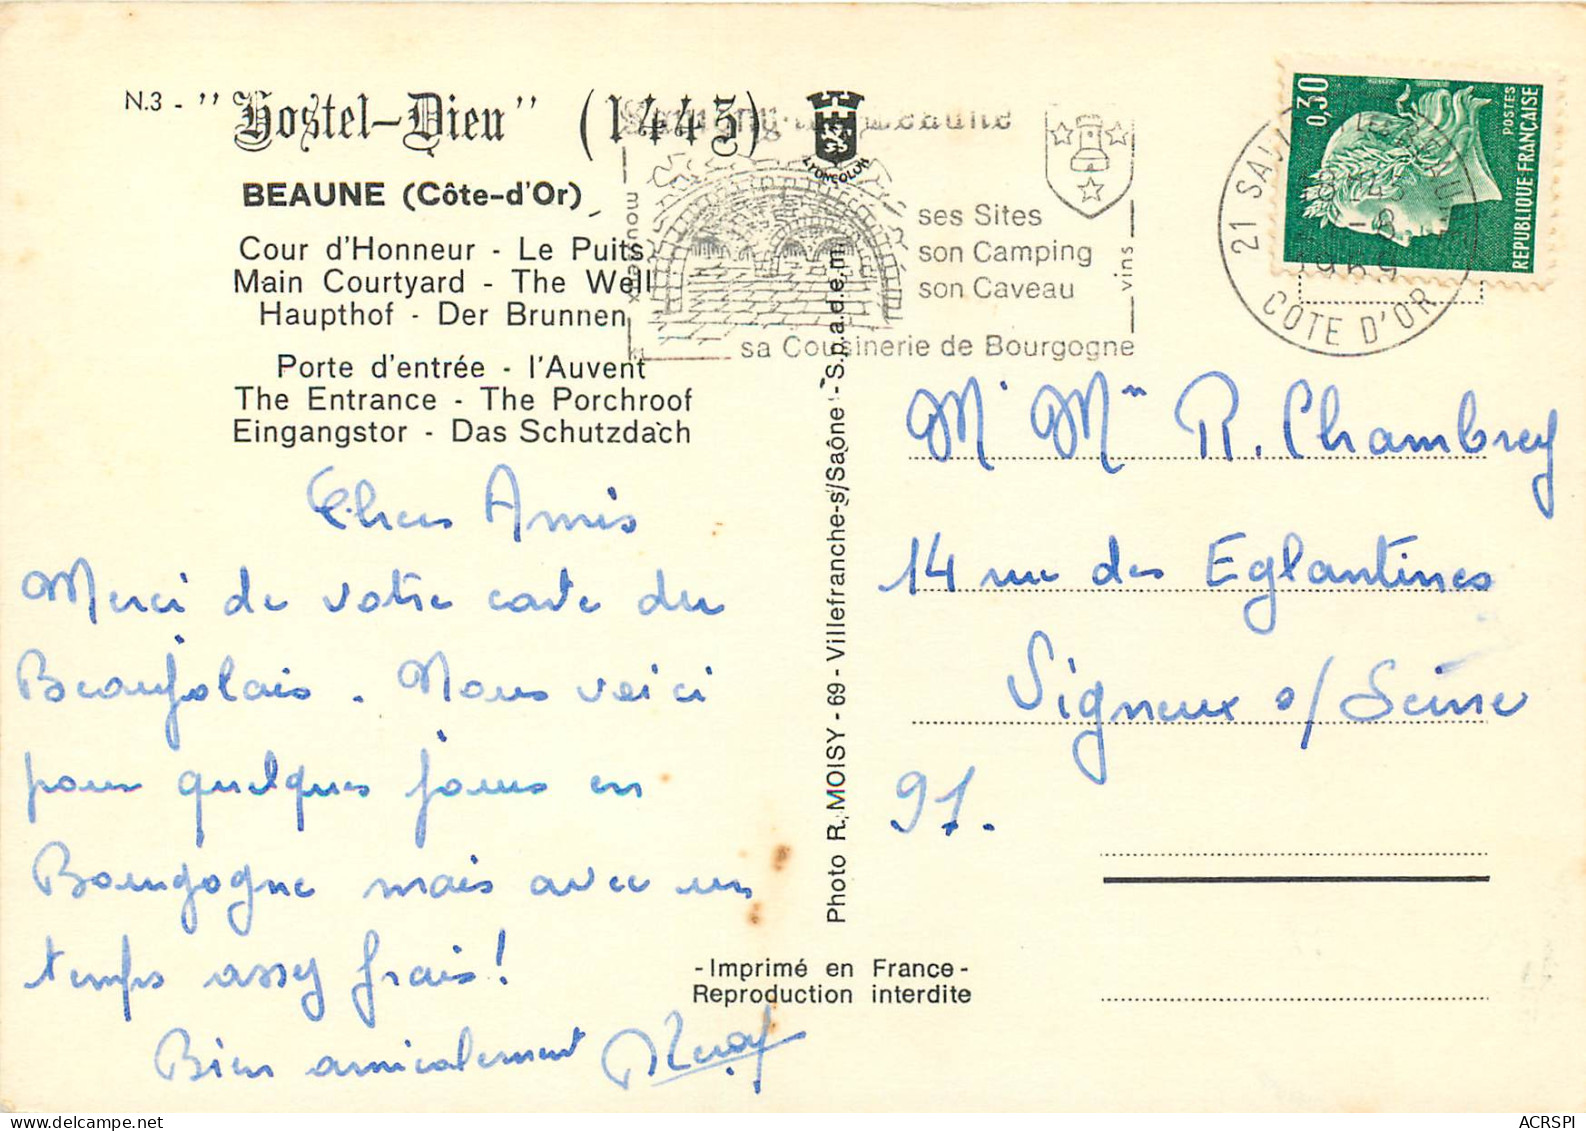 N.3 - "Hostel-Dieu" (1445)
BEAUNE (Côte-d'Or)
Cour d'Honneur - Le Puits
Main Courtyard - The Well
Haupthof - Der Brunnen
Porte d'entrée - l'Auvent
The Entrance - The Porchroof
Eingangstor - Das Schutzdach
LYONCOLOR
ses Sites
son Camping
son Caveau
vins
sa Cousinerie de Bourgogne
0,30
POSTES
REPUBLIQUE FRANÇAISE
21
COTE D'OR
1969
Chers Amis
Merci de votre carte du
Beaujolais. Nous voici
pour quelques jours en
Bourgogne mais avec un
temps assez frais!
Bien amicalement
Photo R. MOISY - 69 - Villefranche-s/Saône - S.p.a.d.e.m.
Mr Mme R. Chambrey
14 rue des Eglantines
Vigneux s/Seine
91.
- Imprimé en France -
Reproduction interdite
ACRSPI